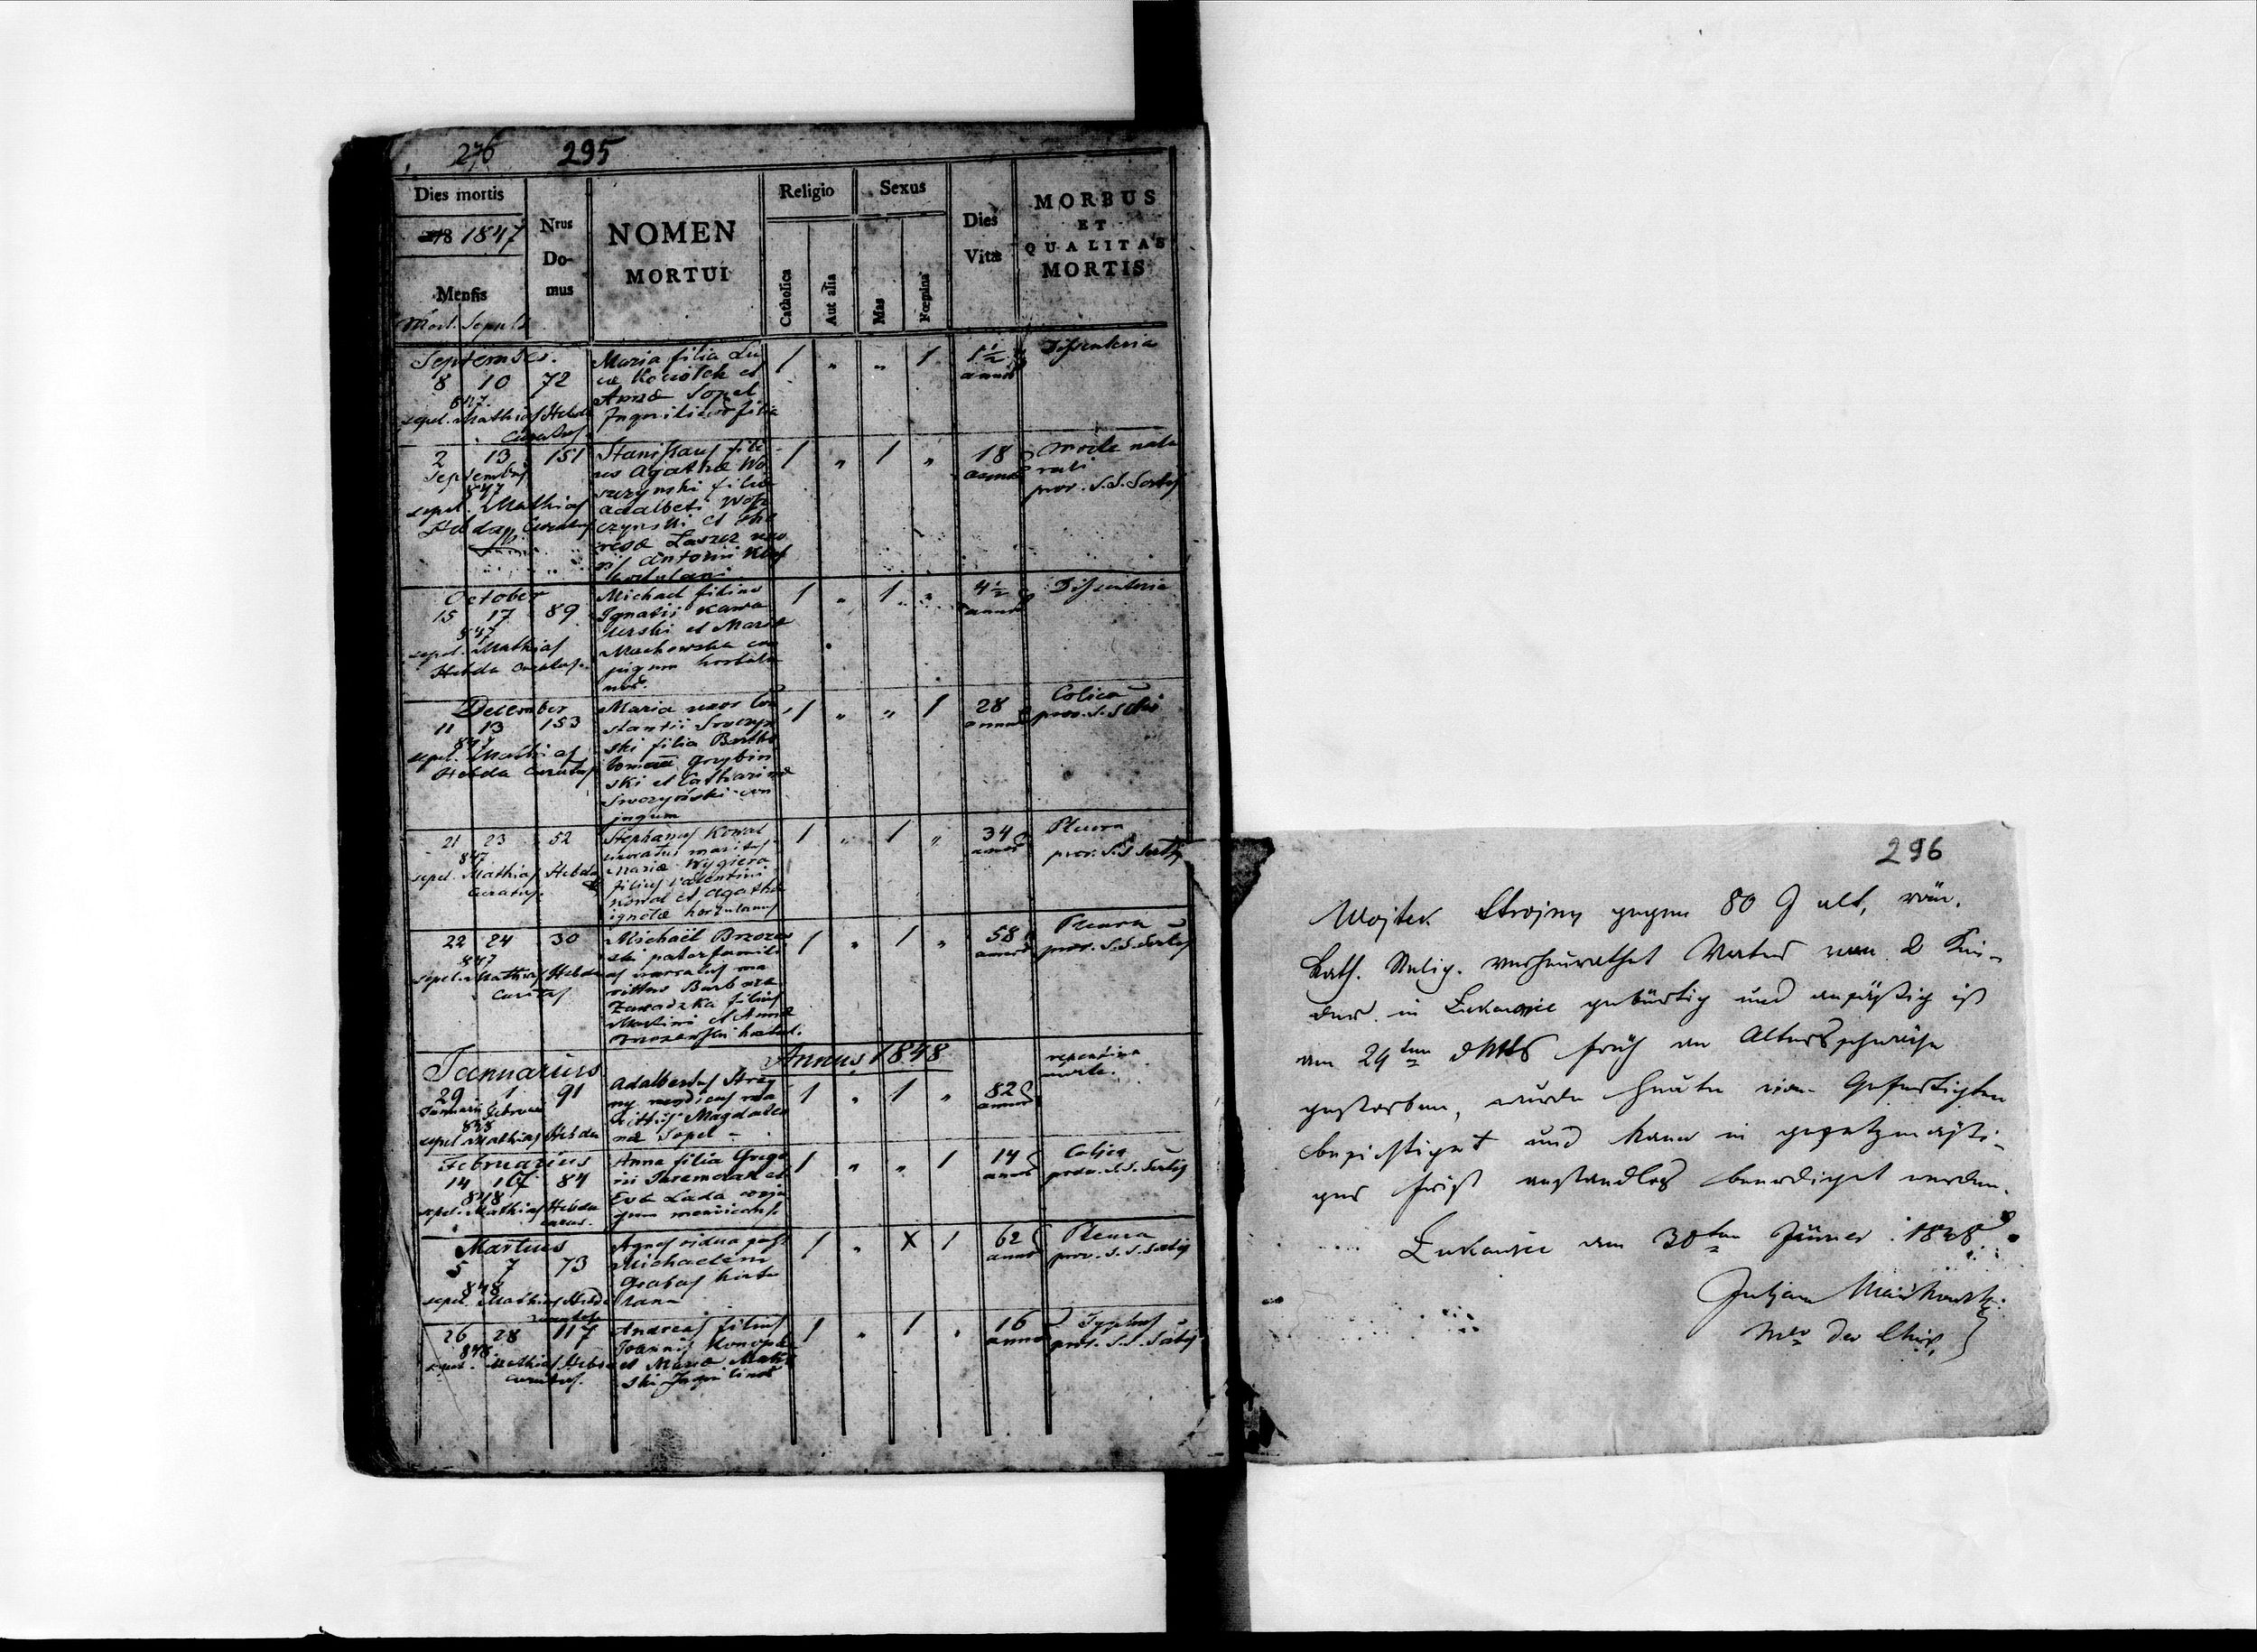 276 295
Dies mortis
18 1847
Mensis
Mort. Sepult.
Nrus
Do-
mus
NOMEN
MORTUI
Religio
Catholica
Aut alia
Sexus
Mas
Fœmina
Dies
Vitæ
MORBUS
ET
QUALITAS
MORTIS
September
8 10 72
847
sepel. Mathias Hebda
Curatus
Maria filia Lu
cæ Kociolek et
Annæ Sopel
Inquilinor filia
1 „ „ 1
1 1/2
annor
Dissenteria
2 13 151
Septembris
847
sepel. Mathias
Hebda Curatus
Stanislaus fili
us Agathæ Wo
szczynski filiæ
Adalberti Wosz
czynski et The
resæ Laszcz uxo
ris Antonii
hortulani
1 „ 1 „
18
annor
Morte natu
rali
prov. S.S. Sactis
October
15 17 89
847
sepel. Mathias
Hebda Curatus
Michael filius
Ignatii Kawa
lerski et Mariæ
Machowska con
jugum hortula
nor.
1 „ 1 „
4 1/2
annor
Dissenteria
December
11 13 153
847
sepel. Mathias
Hebda Curatus
Maria uxor Con
stantii Sroczyn
ski filia Bartho
lomæi Grzybin
ski et Catharinæ
Sroczyński con
jugum
1 „ „ 1
28
annor
Colica
prov. S.
21 23 52
847
sepel. Mathias Hebda
Curatus.
Stephanus Kowal
uxoratus maritus
Mariæ Wygiera
filius Valentini
Kowal et Agatha
ignotæ hortulanus
1 „ 1 „
34
annor
Pleura
prov. S.S Sactis
22 24 30
847
sepel. Mathias Hebda
Curatus
Michaël Brzozow
ski paterfamili
as uxoratus ma
rittus Barbara
Zawadzka filius
Martini et Annæ
Brzozowski hortul.
1 „ 1 „
58
annor
Pleura
prov. S.S. Sactis
Annus 1848
Januarius
29 1 91
Januarii Februarii
848
sepel Mathias Hebda
Adalbertus Stroy
ny mendicus ma
rittus Magdale
næ Sopel -
1 „ 1 „
82
annor
repentina
morte.
Februarius
14 16 84
848
sepel. Mathias Hebda
curat.
Anna filia Grego
rii Jaremczak et
Eva Lada conju
gum mendicans
1 „ „ 1
14
annor
Colica
prov. S.S. Sactis
Martius
5 7 73
848
sepel. Mathias Hebda
curatus
Agnes vidua post
Michaelem
Grabas hortu
lana
1 „ X 1
62
annor
Pleura
prov. S.S. Sactis
26 28 117
848
sepel. Mathias Hebda
curatus.
Andreas filius
Joannis Konopka
et Mariæ
ski Inquilinor
1 „ 1 „
16
annor
Typhus
prov. S.S. Sactis
296
Wojtek Strojny gegen 80 J alt, röm.
kath. Relig. verheurathet Vater von 2 Kin-
der in Lukawiec gebürtig und ansäßig ist
am 29ten dMts früh an Altersschwäche
gestorben, wurde heute von Gefertigten
besichtiget und kann in gesetzmäßi-
ger frist anstandlos beerdiget werden.
Lukawiec am 30ten Jäner 1848
Julian
der Chir.